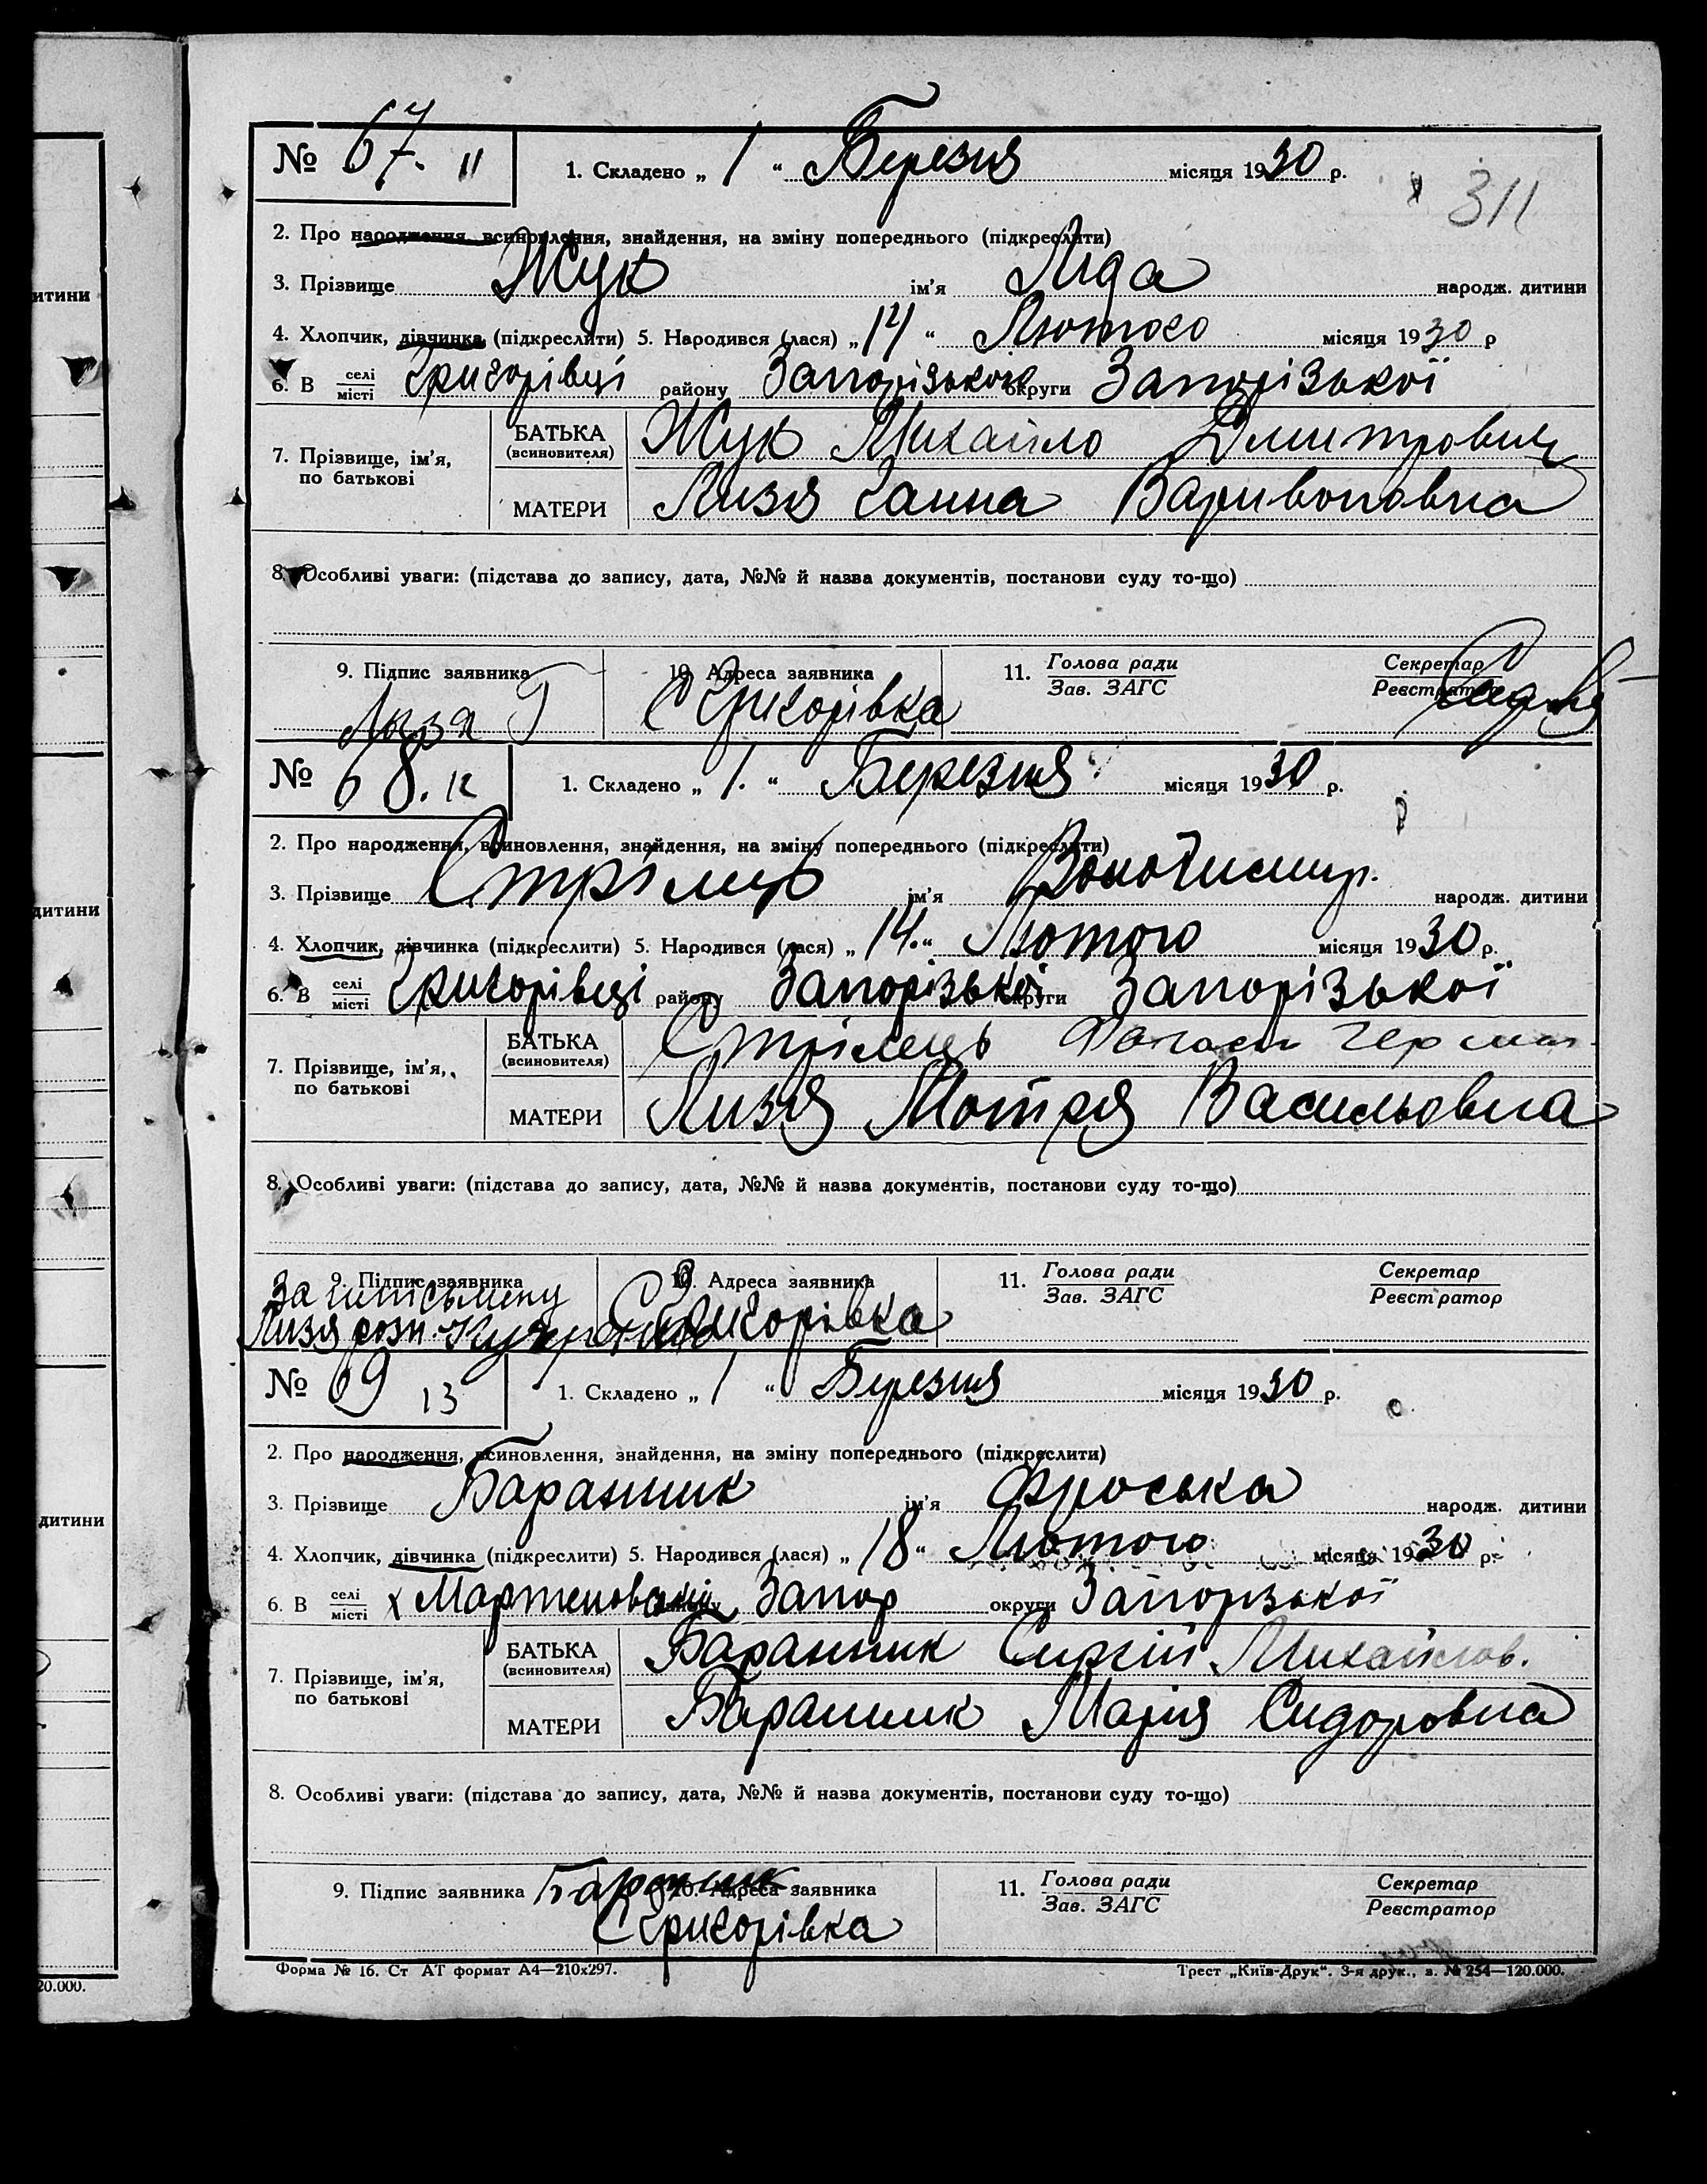 № 67. 11 1. Складено „ 1 “ Березня місяця 1930 р.
311
2. Про народження, всиновлення, знайдення, на зміну попереднього (підкреслити)
3. Прізвище Жук ім'я Ліда народж. дитини
4. Хлопчик, дівчинка (підкреслити) 5. Народився (лася) „ 14 “ Лютого місяця 1930 р
6. В селі місті Григорівці району Запорізького округи Запорізької
7. Прізвище, ім'я, по батькові
БАТЬКА (всиновителя) Жук Михайло Дмитрович
МАТЕРИ Лизя Ганна Варивоновна
8. Особливі уваги: (підстава до запису, дата, №№ й назва документів, постанови суду то-що)
9. Підпис заявника 10. Адреса заявника 11. Голова ради Зав. ЗАГС Секретар Реєстратор
Лызя Г С Григорівка
№ 68. 12 1. Складено „ 1. “ Березня місяця 1930 р.
2. Про народження, всиновлення, знайдення, на зміну попереднього (підкреслити)
3. Прізвище Стрілець ім'я народж. дитини
4. Хлопчик, дівчинка (підкреслити) 5. Народився (лася) „ 14. “ Лютого місяця 1930 р.
6. В селі місті Григорівці району Запорізької округи Запорізької
7. Прізвище, ім'я, по батькові
БАТЬКА (всиновителя) Стрілець Панас
МАТЕРИ Лизя Мотря Васильовна
8. Особливі уваги: (підстава до запису, дата, №№ й назва документів, постанови суду то-що)
9. Підпис заявника 10. Адреса заявника 11. Голова ради Зав. ЗАГС Секретар Реєстратор
За
Лизя розп. С Григорівка
№ 69 13 1. Складено „ 1 “ Березня місяця 1930 р.
2. Про народження, всиновлення, знайдення, на зміну попереднього (підкреслити)
3. Прізвище Баранник ім'я Фроська народж. дитини
4. Хлопчик, дівчинка (підкреслити) 5. Народився (лася) „ 18 “ Лютого місяця 1930 р.
6. В селі місті х Мартеновскій району Запор округи Запорізької
7. Прізвище, ім'я, по батькові
БАТЬКА (всиновителя) Баранник Сергій Михайлов.
МАТЕРИ Баранник Марія Сидоровна
8. Особливі уваги: (підстава до запису, дата, №№ й назва документів, постанови суду то-що)
9. Підпис заявника Баранник 10. Адреса заявника 11. Голова ради Зав. ЗАГС Секретар Реєстратор
С Григорівка
Форма № 16. Ст АТ формат А4—210х297. Трест „Київ-Друк“. 3-я друк., з. № 254—120.000.
итини
дитини
дитини
20.000.